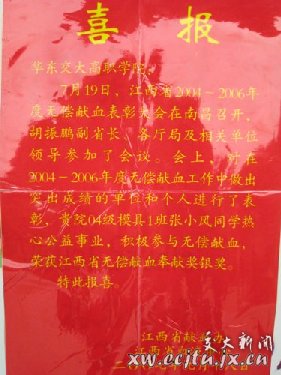 喜报
华东交大高职学院:
7月19日、江西省2004-2006年
度无偿献血表彰大会在南昌召开,
胡振鹏副省长、各厅局及相关单位
领导参加了会议。会上,对在
2004-2006年度无偿献血工作中做出
突出成绩的单位和个人进行了表
彰,贵院04级模具1班张小凤同学热
心公益事业,积极参与无偿献血,
荣获江西省无偿献血奉献奖银奖。
特此报喜。
江西省献血办
江西省
交大新闻
xw.ecjtu.jx.cn